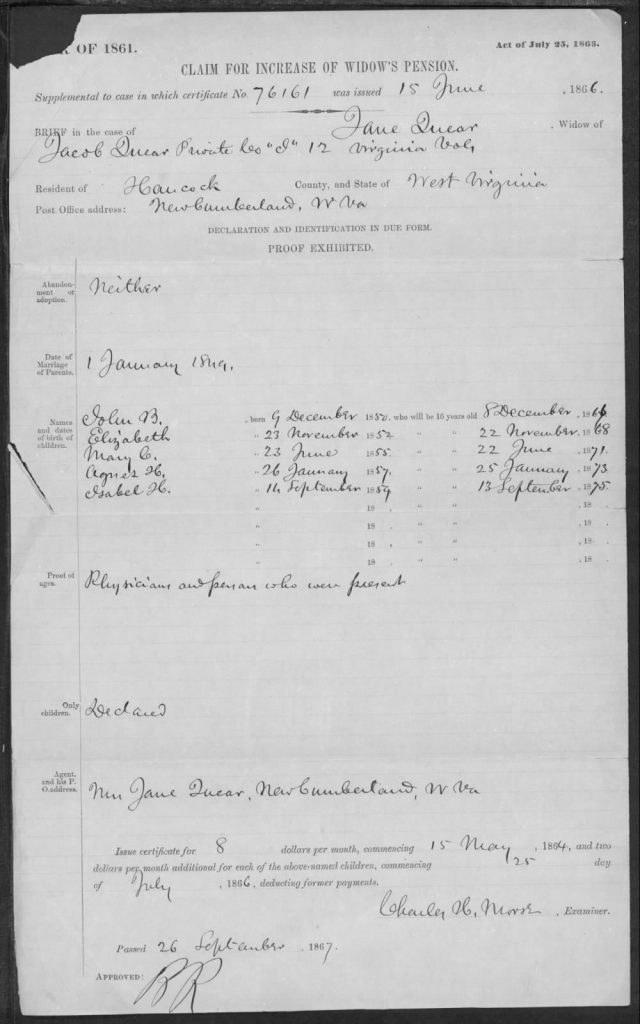 R OF 1861.
Act of July 25, 1865.
CLAIM FOR INCREASE OF WIDOW'S PENSION.
Supplemental to case in which certificate No. 76161 was issued 15 June , 1866.
BRIEF in the case of Jane Quear , Widow of
Jacob Quear Private Co "I" 12 Virginia Vols
Resident of Hancock County, and State of West Virginia
Post Office address: New Cumberland, W Va
DECLARATION AND IDENTIFICATION IN DUE FORM.
PROOF EXHIBITED.
Abandon-
ment or
adoption.
Neither
Date of
Marriage
of Parents.
1 January 1849.
Names
and dates
of birth of
children.
John B. , born 9 December 1850, who will be 16 years old 8 December , 1866
Elizabeth " 23 November 1852 " " 22 November , 1868
Mary C. " 23 June 1855. " " 22 June , 1871
Agnes H. " 26 January 1857. " " 25 January , 1873
Isabel H. " 14 September 1859 " " 13 September , 1875
" 18 . " " , 18 .
" 18 . " " , 18 .
" 18 . " " , 18 .
" 18 . " " , 18 .
Proof of
ages.
Physicians and person who were present
Only
children.
Declared
Agent,
and his P.
O. address.
Mrs Jane Quear, New Cumberland, W Va
Issue certificate for 8 dollars per month, commencing 15 May , 1864, and two
dollars per month additional for each of the above-named children, commencing 25 day
of July , 1866, deducting former payments.
Charles H. Morse , Examiner.
Passed 26 September , 1867.
APPROVED: BR